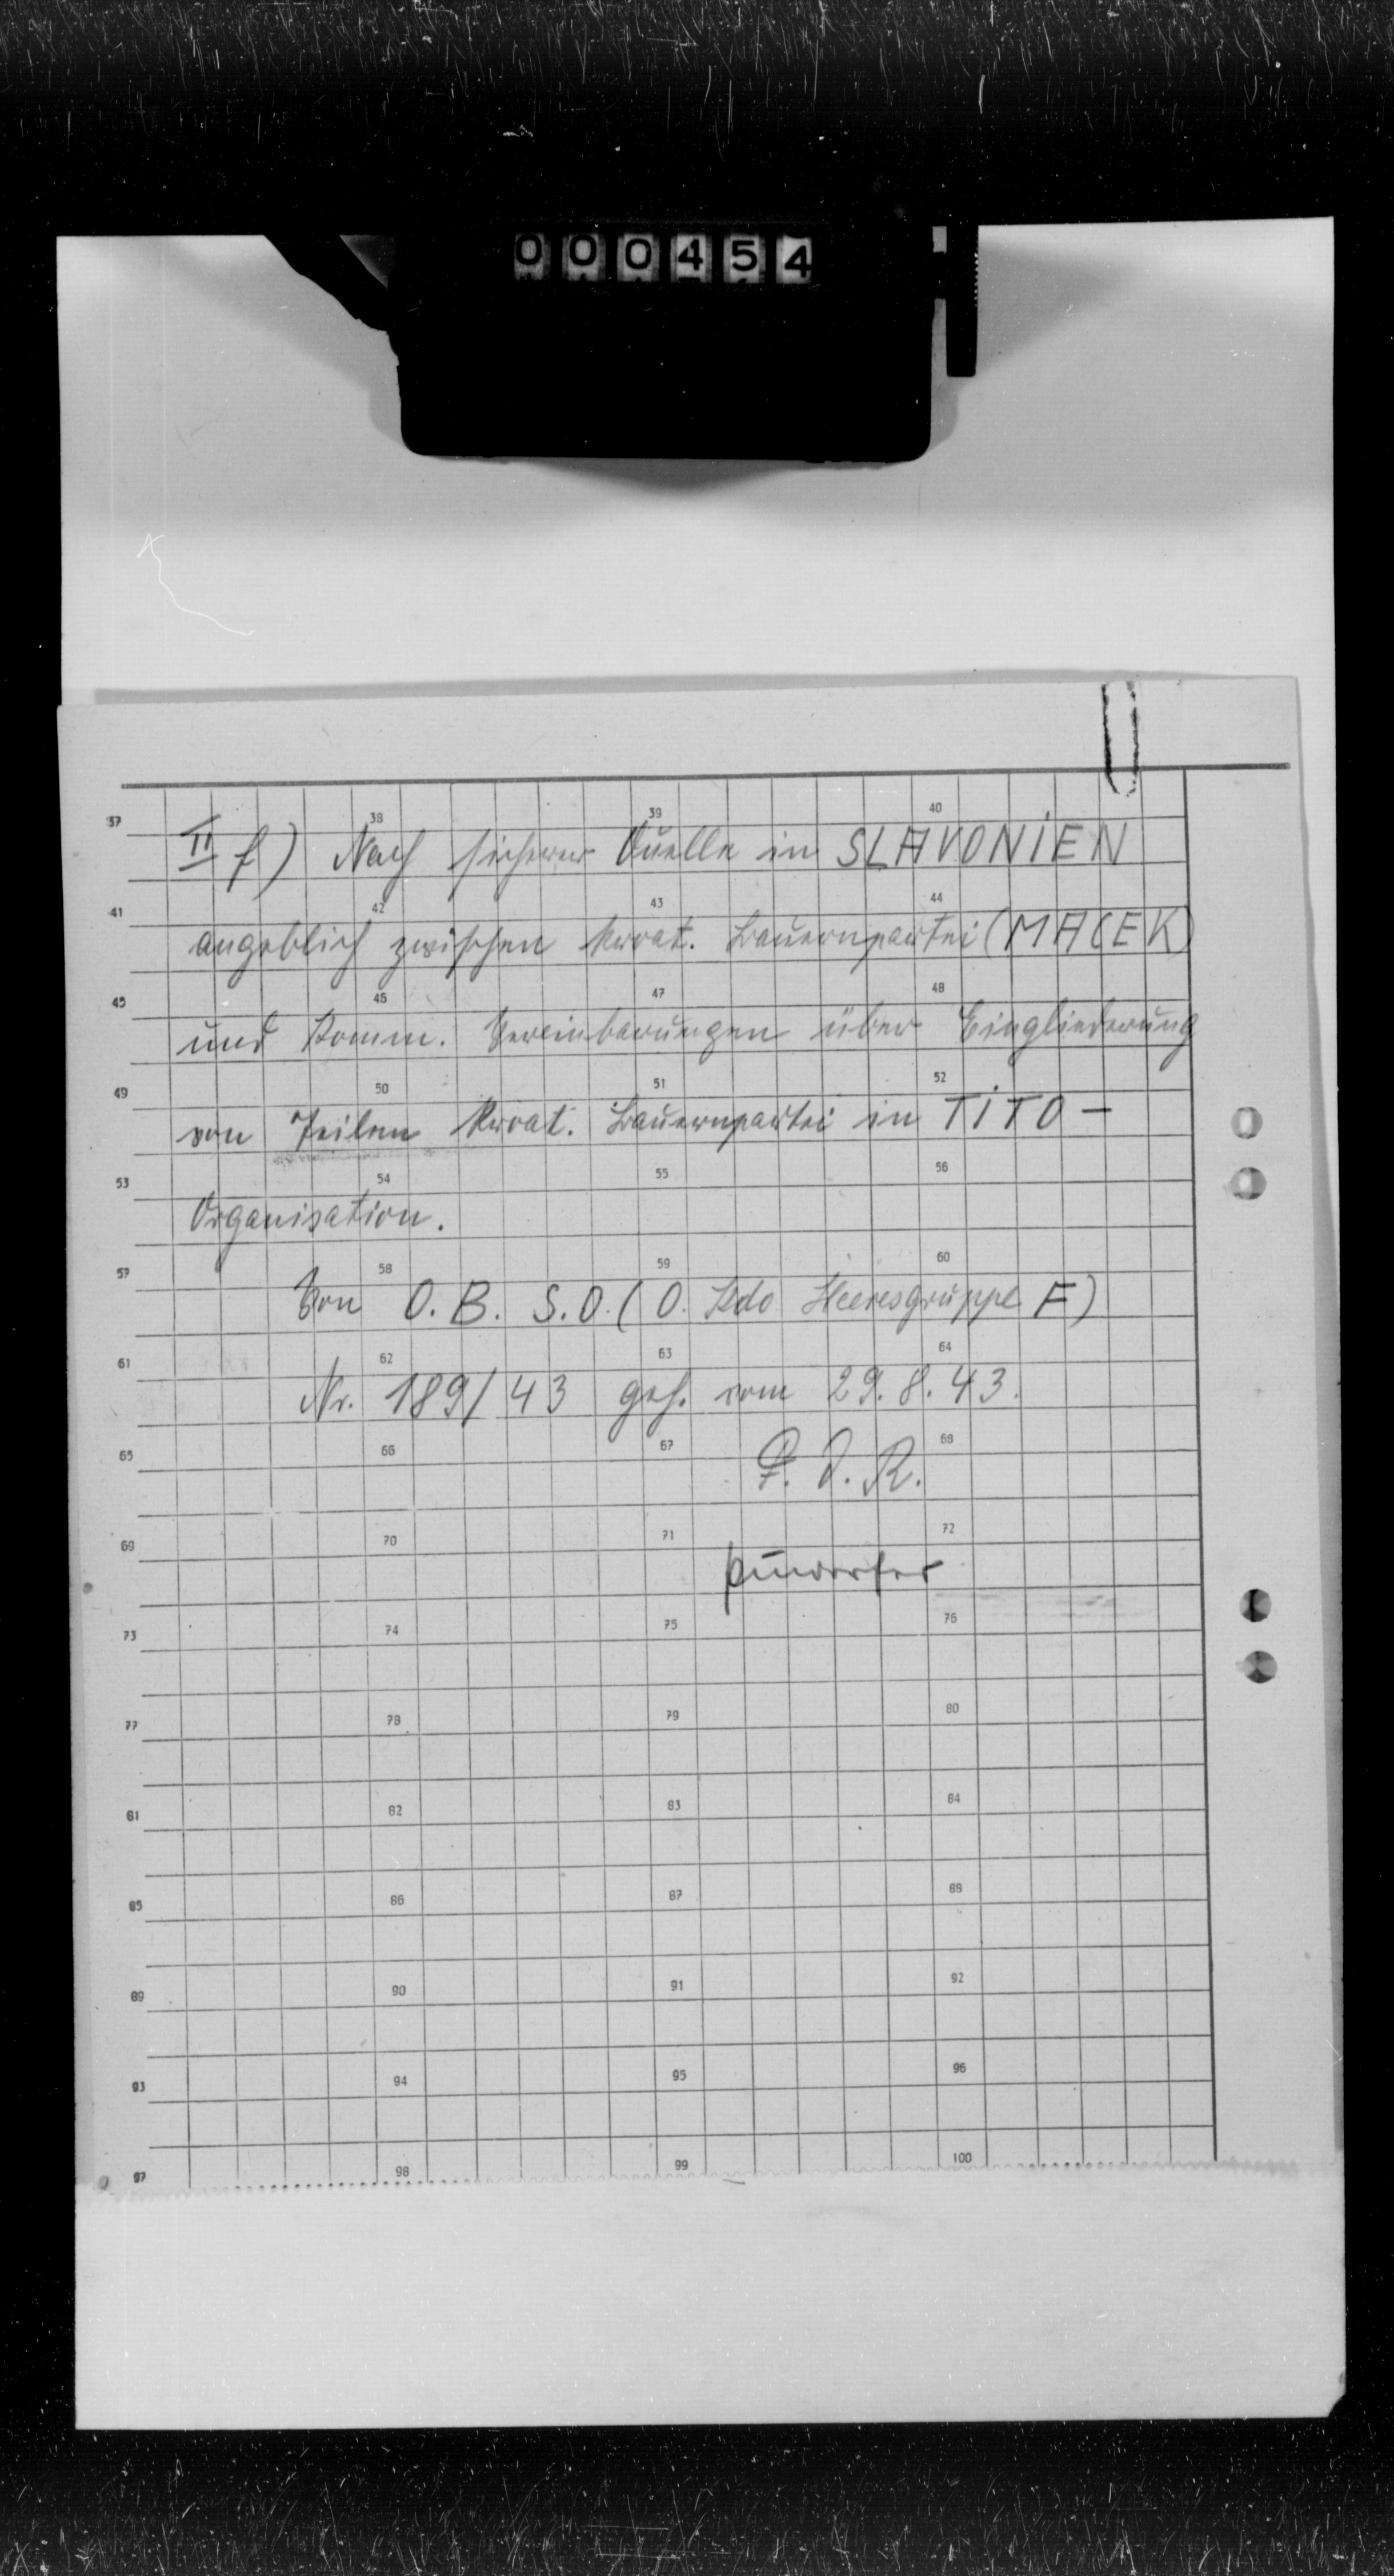 000454
37 38 39 40
II f) Nach sicherer Quelle in SLAVONIEN
41 42 43 44
angeblich zwischen kroat. Bauernpartei (MACEK)
45 46 47 48
und Komm. Vereinbarungen über Eingliederung
49 50 51 52
von Teilen kroat. Bauernpartei in TITO –
53 54 55 56
Organisation.
57 58 59 60
Von O.B. S.O. (O. Kdo Heeresgruppe F)
61 62 63 64
Nr. 189/43 geh. vom 29.8.43.
65 66 67 68
F. d. R.
69 70 71 72
73 74 75 76
77 78 79 80
81 82 83 84
85 86 87 88
89 90 91 92
93 94 95 96
97 98 99 100